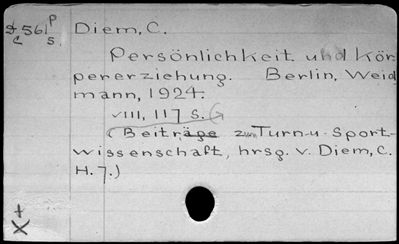 Diem, C.
Persönlichkeit und Kör-
pererziehung. Berlin, Weid
mann, 1924.
VIII, 117 S.
(Beiträge zum Turn-u-Sport-
wissenschaft, hrsg. v. Diem, C.
H. 7.)